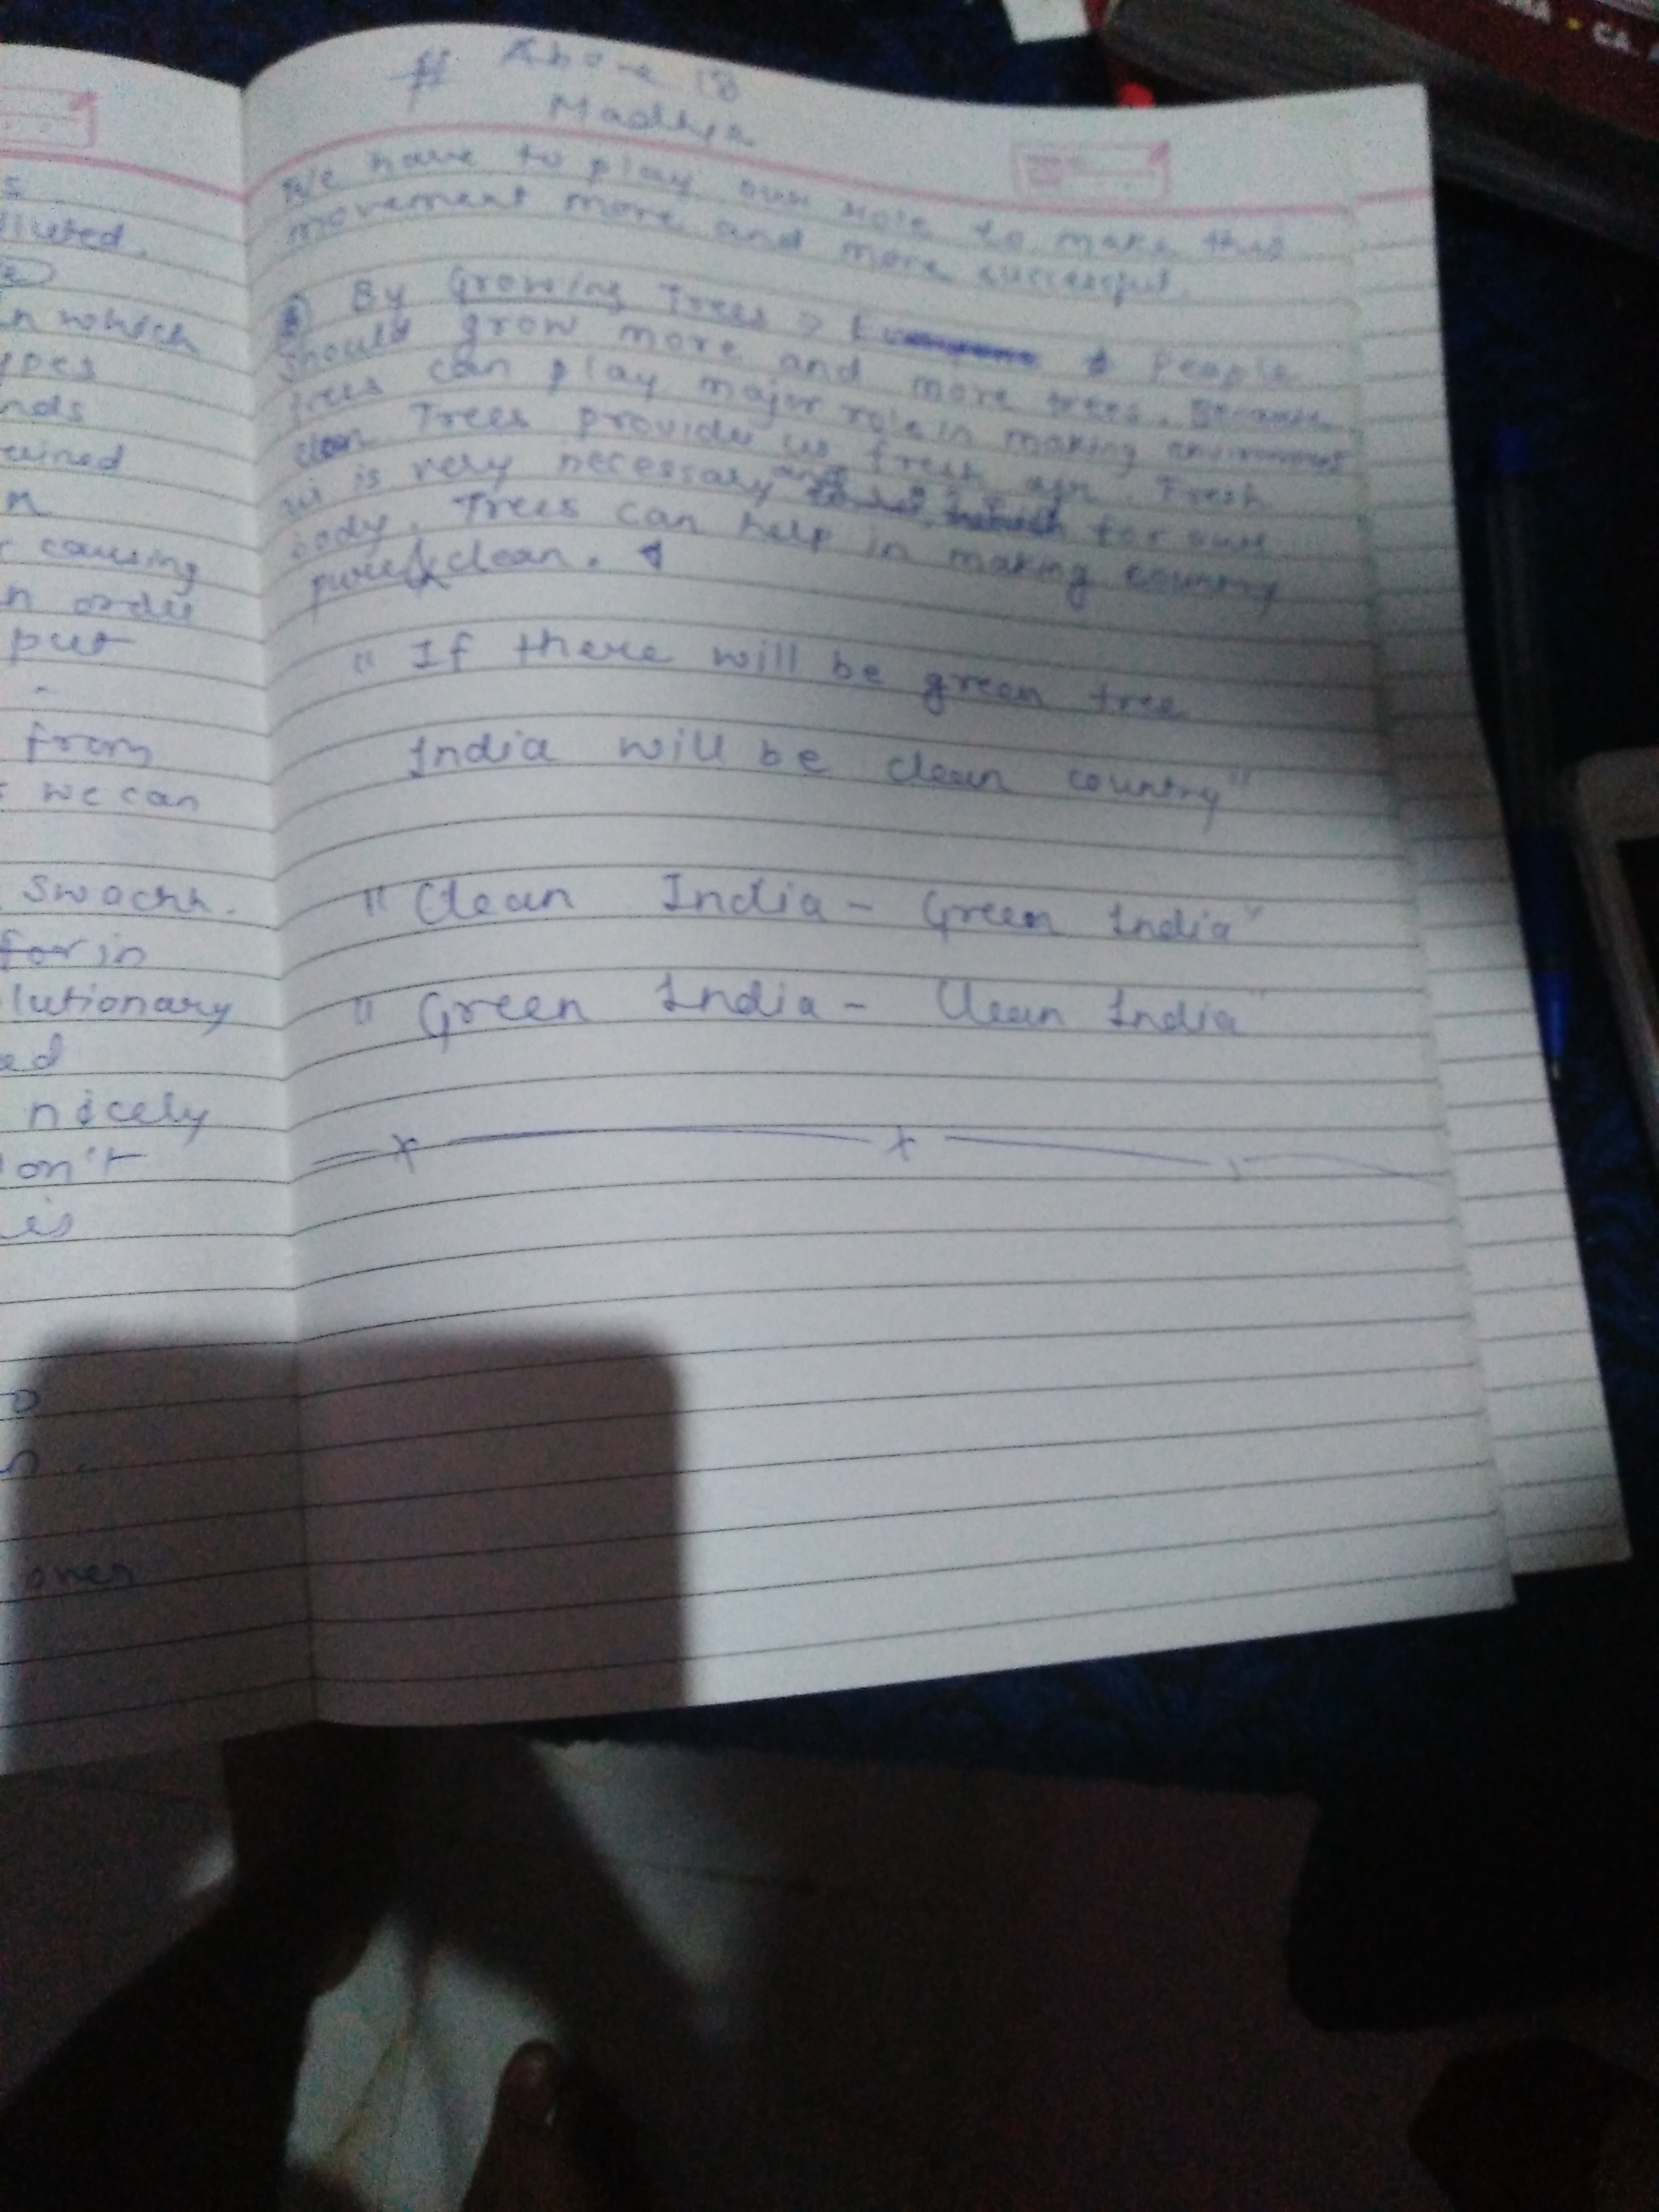 s
lluted.
n which
ypes
nds
ruined
n
causing
n order
put
from
we can
Swachh.
for in
lutionary
ed
nicely
on't
is
over
# Above 18
Madhya
We have to play our role to make this
movement more and more successful.
By Growing Trees > People
should grow more and more trees. Because
trees can play major role in making environment
clean Trees provide us fresh air. Fresh
air is very necessary and for our
body. Trees can help in making country
pure & clean.
" If there will be green tree
India will be clean country"
" Clean India - Green India"
" Green India - Clean India"
CA.